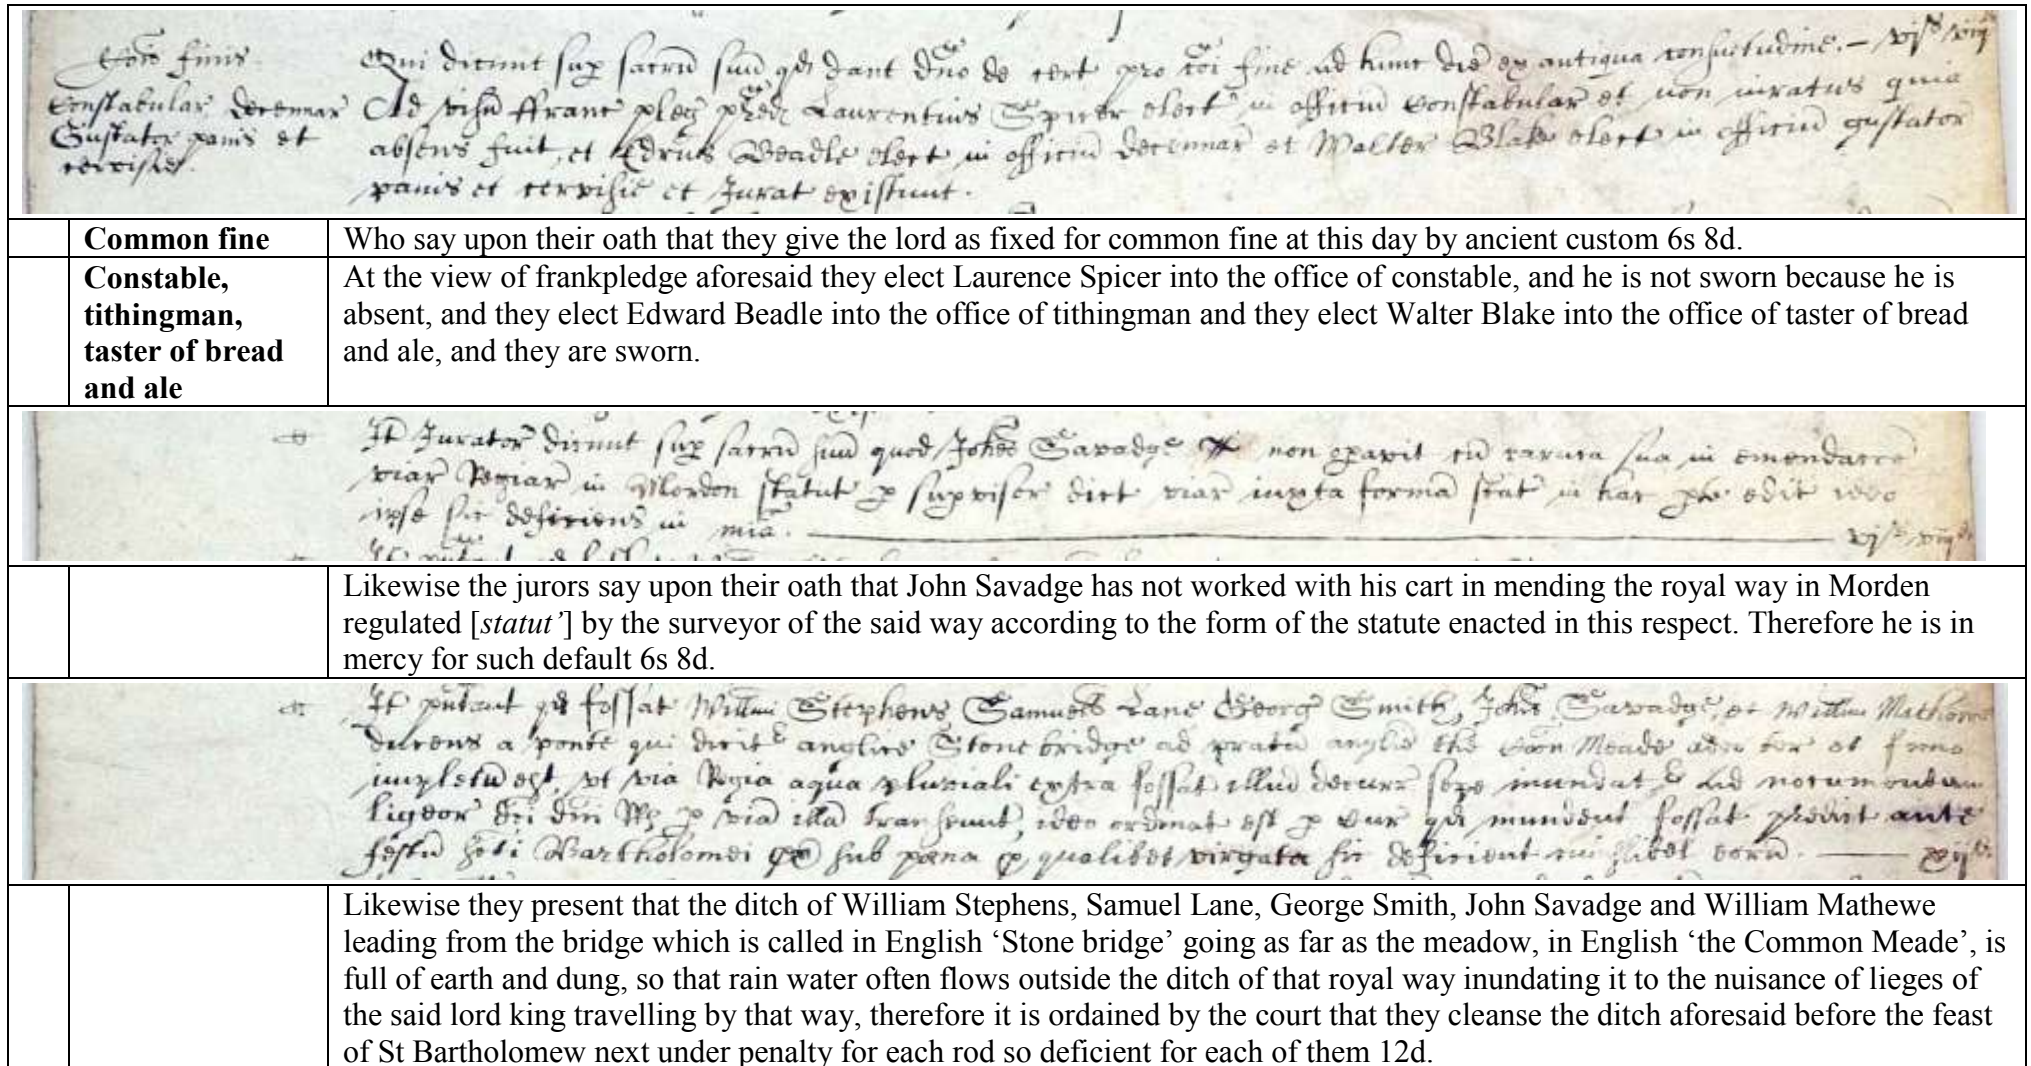 Cois finis.
Constabular decennar
Gustator panis et
cervisie.
Qui dicunt sup sacrm suu qd dant dno de cert pro coi fine ad hunc die ex antiqua consuetudine. – vjs viijd
Ad visu ffranc pleg pred Laurentius Spicer elect in officiu Constabular et non iuratus quia
absens fuit, et Edrus Beadle elect in officiu decennar et Walter Blake elect in officiu gustator
panis et cervisie et Jurat existunt.
Common fine
Who say upon their oath that they give the lord as fixed for common fine at this day by ancient custom 6s 8d.
Constable,
tithingman,
taster of bread
and ale
At the view of frankpledge aforesaid they elect Laurence Spicer into the office of constable, and he is not sworn because he is
absent, and they elect Edward Beadle into the office of tithingman and they elect Walter Blake into the office of taster of bread
and ale, and they are sworn.
It Jurator dicunt sup sacrm suu quod Johes Savadge non opavit cu caruca sua in emendacoe
viar Regiar in Mordon statut p supvisor dict viar iuxta forma stat in hac pte edit ideo
ipse sic deficiens in mia. vjs viijd
Likewise the jurors say upon their oath that John Savadge has not worked with his cart in mending the royal way in Morden
regulated [statut’] by the surveyor of the said way according to the form of the statute enacted in this respect. Therefore he is in
mercy for such default 6s 8d.
It pntant qd fossat Willmi Stephens, Samuel Lane Georg Smith, Johis Savadge, et Willm Mathewe
ducens a ponte qui dicit anglice Stone bridge ad pratu anglic the Coon Meade adeo ter et fimo
impletu est, vt via Regia aqua pluviali extra fossat illud decurr sepe inundat ad nocumentum
ligeor dci dni Rs p via illa transeunt, ideo ordinat est p Cur qd mundent fossat predict ante
festu Sci Bartholomei px sub pena p qualibet virgata sic deficient cuiuslibet eoru. xijd
Likewise they present that the ditch of William Stephens, Samuel Lane, George Smith, John Savadge and William Mathewe
leading from the bridge which is called in English ‘Stone bridge’ going as far as the meadow, in English ‘the Common Meade’, is
full of earth and dung, so that rain water often flows outside the ditch of that royal way inundating it to the nuisance of lieges of
the said lord king travelling by that way, therefore it is ordained by the court that they cleanse the ditch aforesaid before the feast
of St Bartholomew next under penalty for each rod so deficient for each of them 12d.